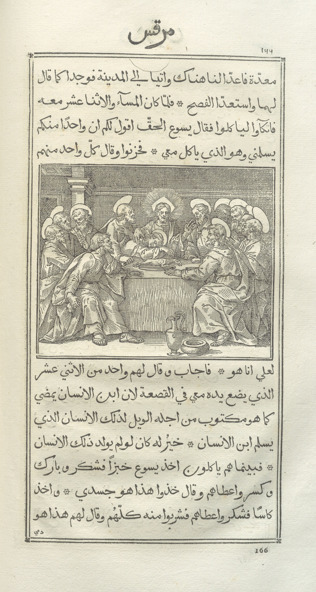 مرقس
١٩٩
معدّة فاعدّا لنا هناك واتيا الى المدينة فوجدا كما قال
لهما واستعدّا الفصح * فلمّا كان المسآء والاثنا عشر معه
فاتكاوا لياكلوا فقال يسوع الحقّ اقول لكم ان واحدًا منكم
يسلمني وهو الذي ياكل معي * فحزنوا وقال كلّ واحد منهم
لعلي انا هو * فاجاب و قال لهم واحد من الاثني عشر
الذي يضع يده معي في القصعة لان ابن الانسان يمضي
كما هو مكتوب من اجله الويل لذلك الانسان الذي
يسلم ابن الانسان * خيرٌ له كان لو لم يولد ذلك الانسان
* فبينما هم ياكلون اخذ يسوع خبزًا فشكر و بارك
و كسر واعطاهم و قال خذوا هذا هو جسدي * و اخذ
كاسًا فشكر واعطاهم فشربوا منه كلّهُم وقال لهم هذا هو
دمي
166